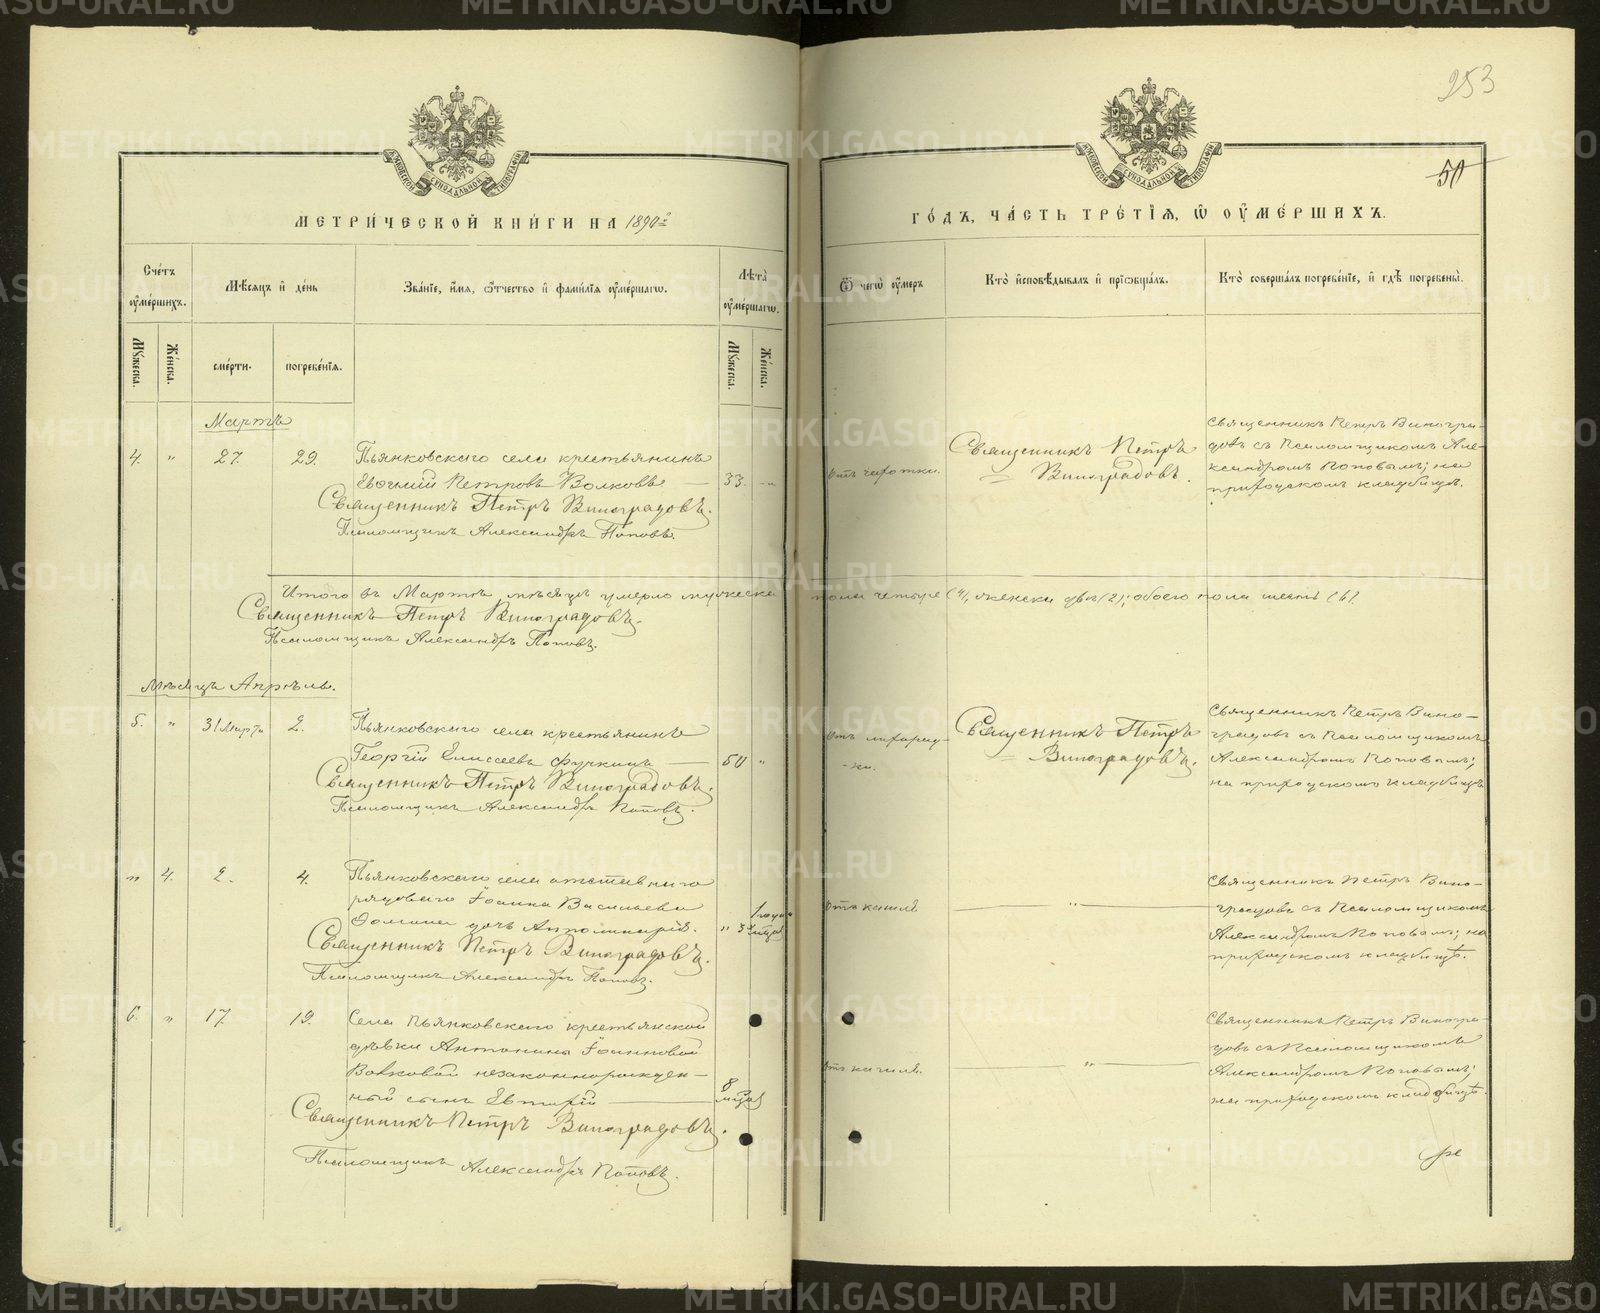 253
50
МЕТРИ́ЧЕСКОЙ КНИ́ГИ НА 1890й
ГО́ДЪ, ЧА́СТЬ ТРЕ́ТІѦ, Ѽ ОУ҆МЕ́РШИХЪ.
Сче́тъ оу҆ме́ршихъ.
Мѣ́сяцъ и҆ де́нь
Зва́нїе, и҆́мя, ѻ҆́тчество и҆ фами́лїя оу҆ме́ршагѡ.
Лѣ́та оу҆ме́ршагѡ.
Ѿ чегѡ̀ оу҆́меръ
Кто̀ и҆сповѣ́дывалъ и҆ прїѡбща́лъ.
Кто̀ соверша́лъ погребе́нїе, и҆ гдѣ̀ погребены̀.
Мꙋ́жеска.
Же́нска.
сме́рти.
погребе́нїя.
Мꙋ́жеска.
Же́нска.
Мартъ
4. " 27. 29. Пьянковскаго села крестьянинъ
Петровъ Волковъ — 33. -"-
Священникъ Петръ Виноградовъ.
Псаломщикъ Александръ Поповъ.
Отъ чахотки.
Священникъ Петръ
Виноградовъ.
Священникъ Петръ Виногра-
довъ съ Псаломщикомъ Але-
ксандромъ Поповымъ; на
приходскомъ кладбищѣ.
Итого въ Мартѣ мѣсяцѣ умерло мужеска пола четыре (4), женска два (2); обоего пола шесть (6).
Священникъ Петръ Виноградовъ.
Псаломщикъ Александръ Поповъ.
Мѣсяцъ Апрѣль.
5. " 31 Марта 2. Пьянковскаго села крестьянинъ
Георгій Елисеевъ — 50 "
Священникъ Петръ Виноградовъ.
Псаломщикъ Александръ Поповъ.
Отъ лихорад-
ки.
Священникъ Петръ
Виноградовъ.
Священникъ Петръ Вино-
градовъ съ Псаломщикомъ
Александромъ Поповымъ;
на приходскомъ кладбищѣ
" 4. 2. 4. Пьянковскаго села отставнаго
рядоваго Іоанна Васильева
Ѳомина дочь " 1 года 3 мѣсяц.
Священникъ Петръ Виноградовъ.
Псаломщикъ Александръ Поповъ.
Отъ кашля
— " —
Священникъ Петръ Вино-
градовъ съ Псаломщикомъ
Александромъ Поповымъ; на
приходскомъ кладбищѣ.
6. " 17. 19. Села Пьянковскаго крестьянской
дѣвки Антонины Іоанновой
Волковой незаконнорожден-
ный сынъ — 8 мѣсяц
Священникъ Петръ Виноградовъ.
Псаломщикъ Александръ Поповъ.
Отъ кашля.
— " —
Священникъ Петръ Виногра-
довъ съ Псаломщикомъ
Александромъ Поповымъ;
на приходскомъ кладбищѣ.
METRIKI.GASO-URAL.RU